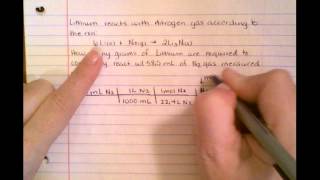 Lithium reacts with nitrogen gas according to
the rxn:
6Li(s) + N₂(g) → 2Li₃N(s)
How many grams of Lithium are required to
react w/ 58.0 mL of N₂ gas measured
mL N₂ 1L N₂ 1mol N₂
1000 mL 22.4L N₂